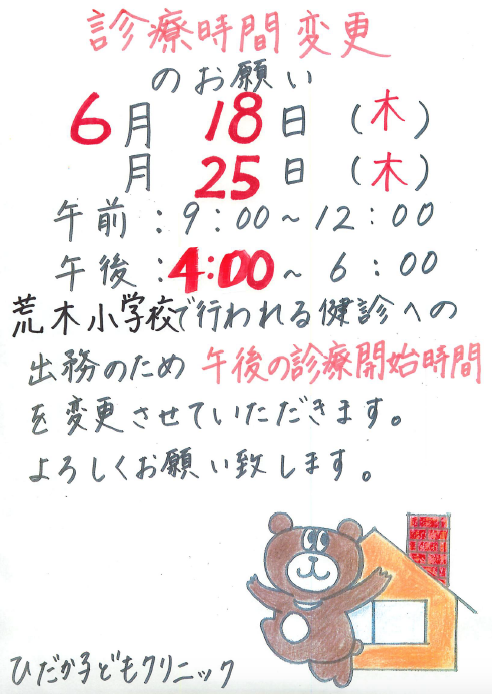 診療時間変更
のお願い
6月 18日 (木)
月 25日 (木)
午前:9:00~12:00
午後:4:00~6:00
荒木小学校で行われる健診への
出務のため 午後の診療開始時間
を変更させていただきます。
よろしくお願い致します。
ひだか子どもクリニック